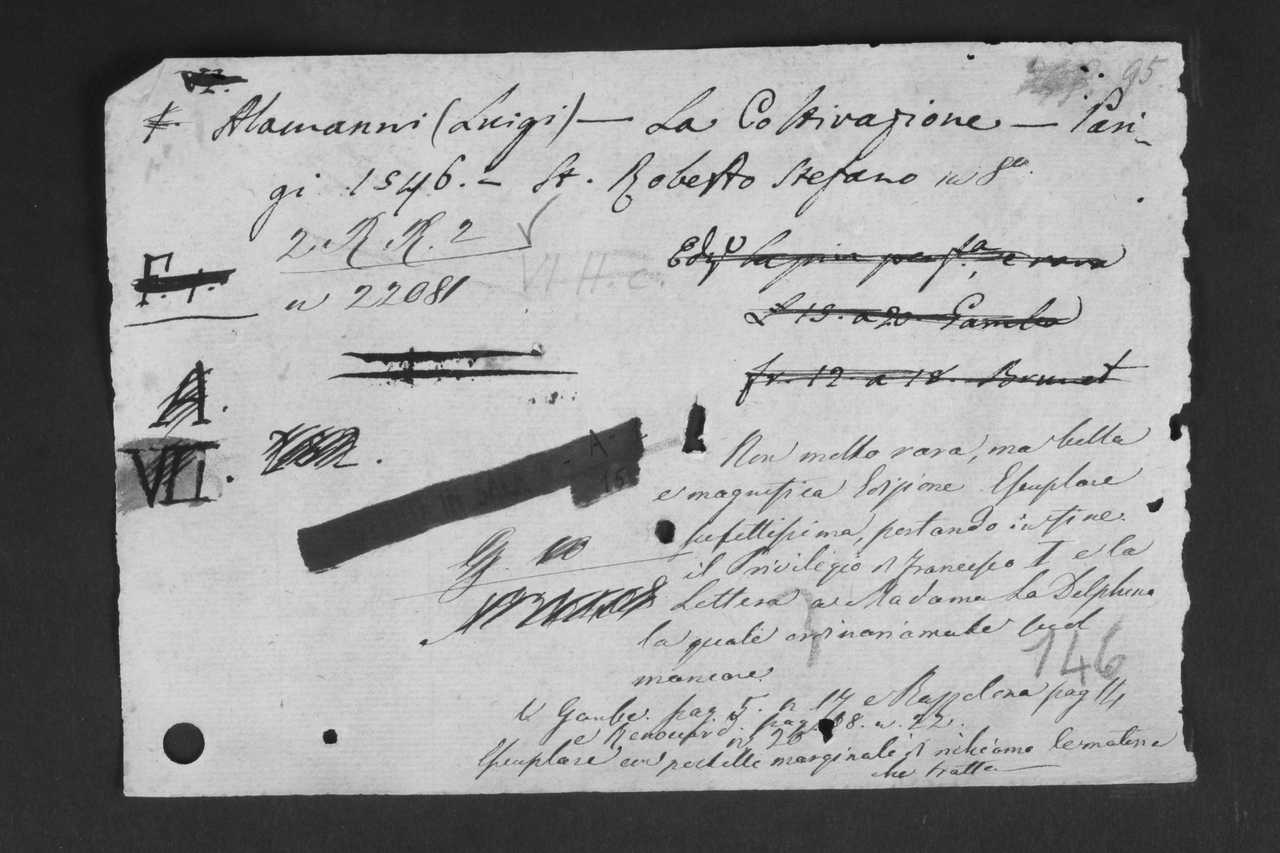 95.
Alamanni (Luigi) — La Coltivazione — Pari-
gi 1546. — St. Roberto Stefano in 8°.
2. R R. 2
VI. H. c.
n 22081
£ 15. a 20. Gamba
fr. 12 a 18. Brunet
A.
VII.
IN SALA A-
15
Non molto rara, ma bella
e magnifica Edizione. Esemplare
perfettissimo, portando in fine
il Privilegio di Francesco I e la
Lettera a Madama La Delphina
la quale ordinariamente suol
mancare.
146
V. Gamba. pag. 5. n 14 e pag 14
e Renouard. pag. 68. n. 22.
n 20
Esemplare con postille marginali di richiamo le materie
che tratta